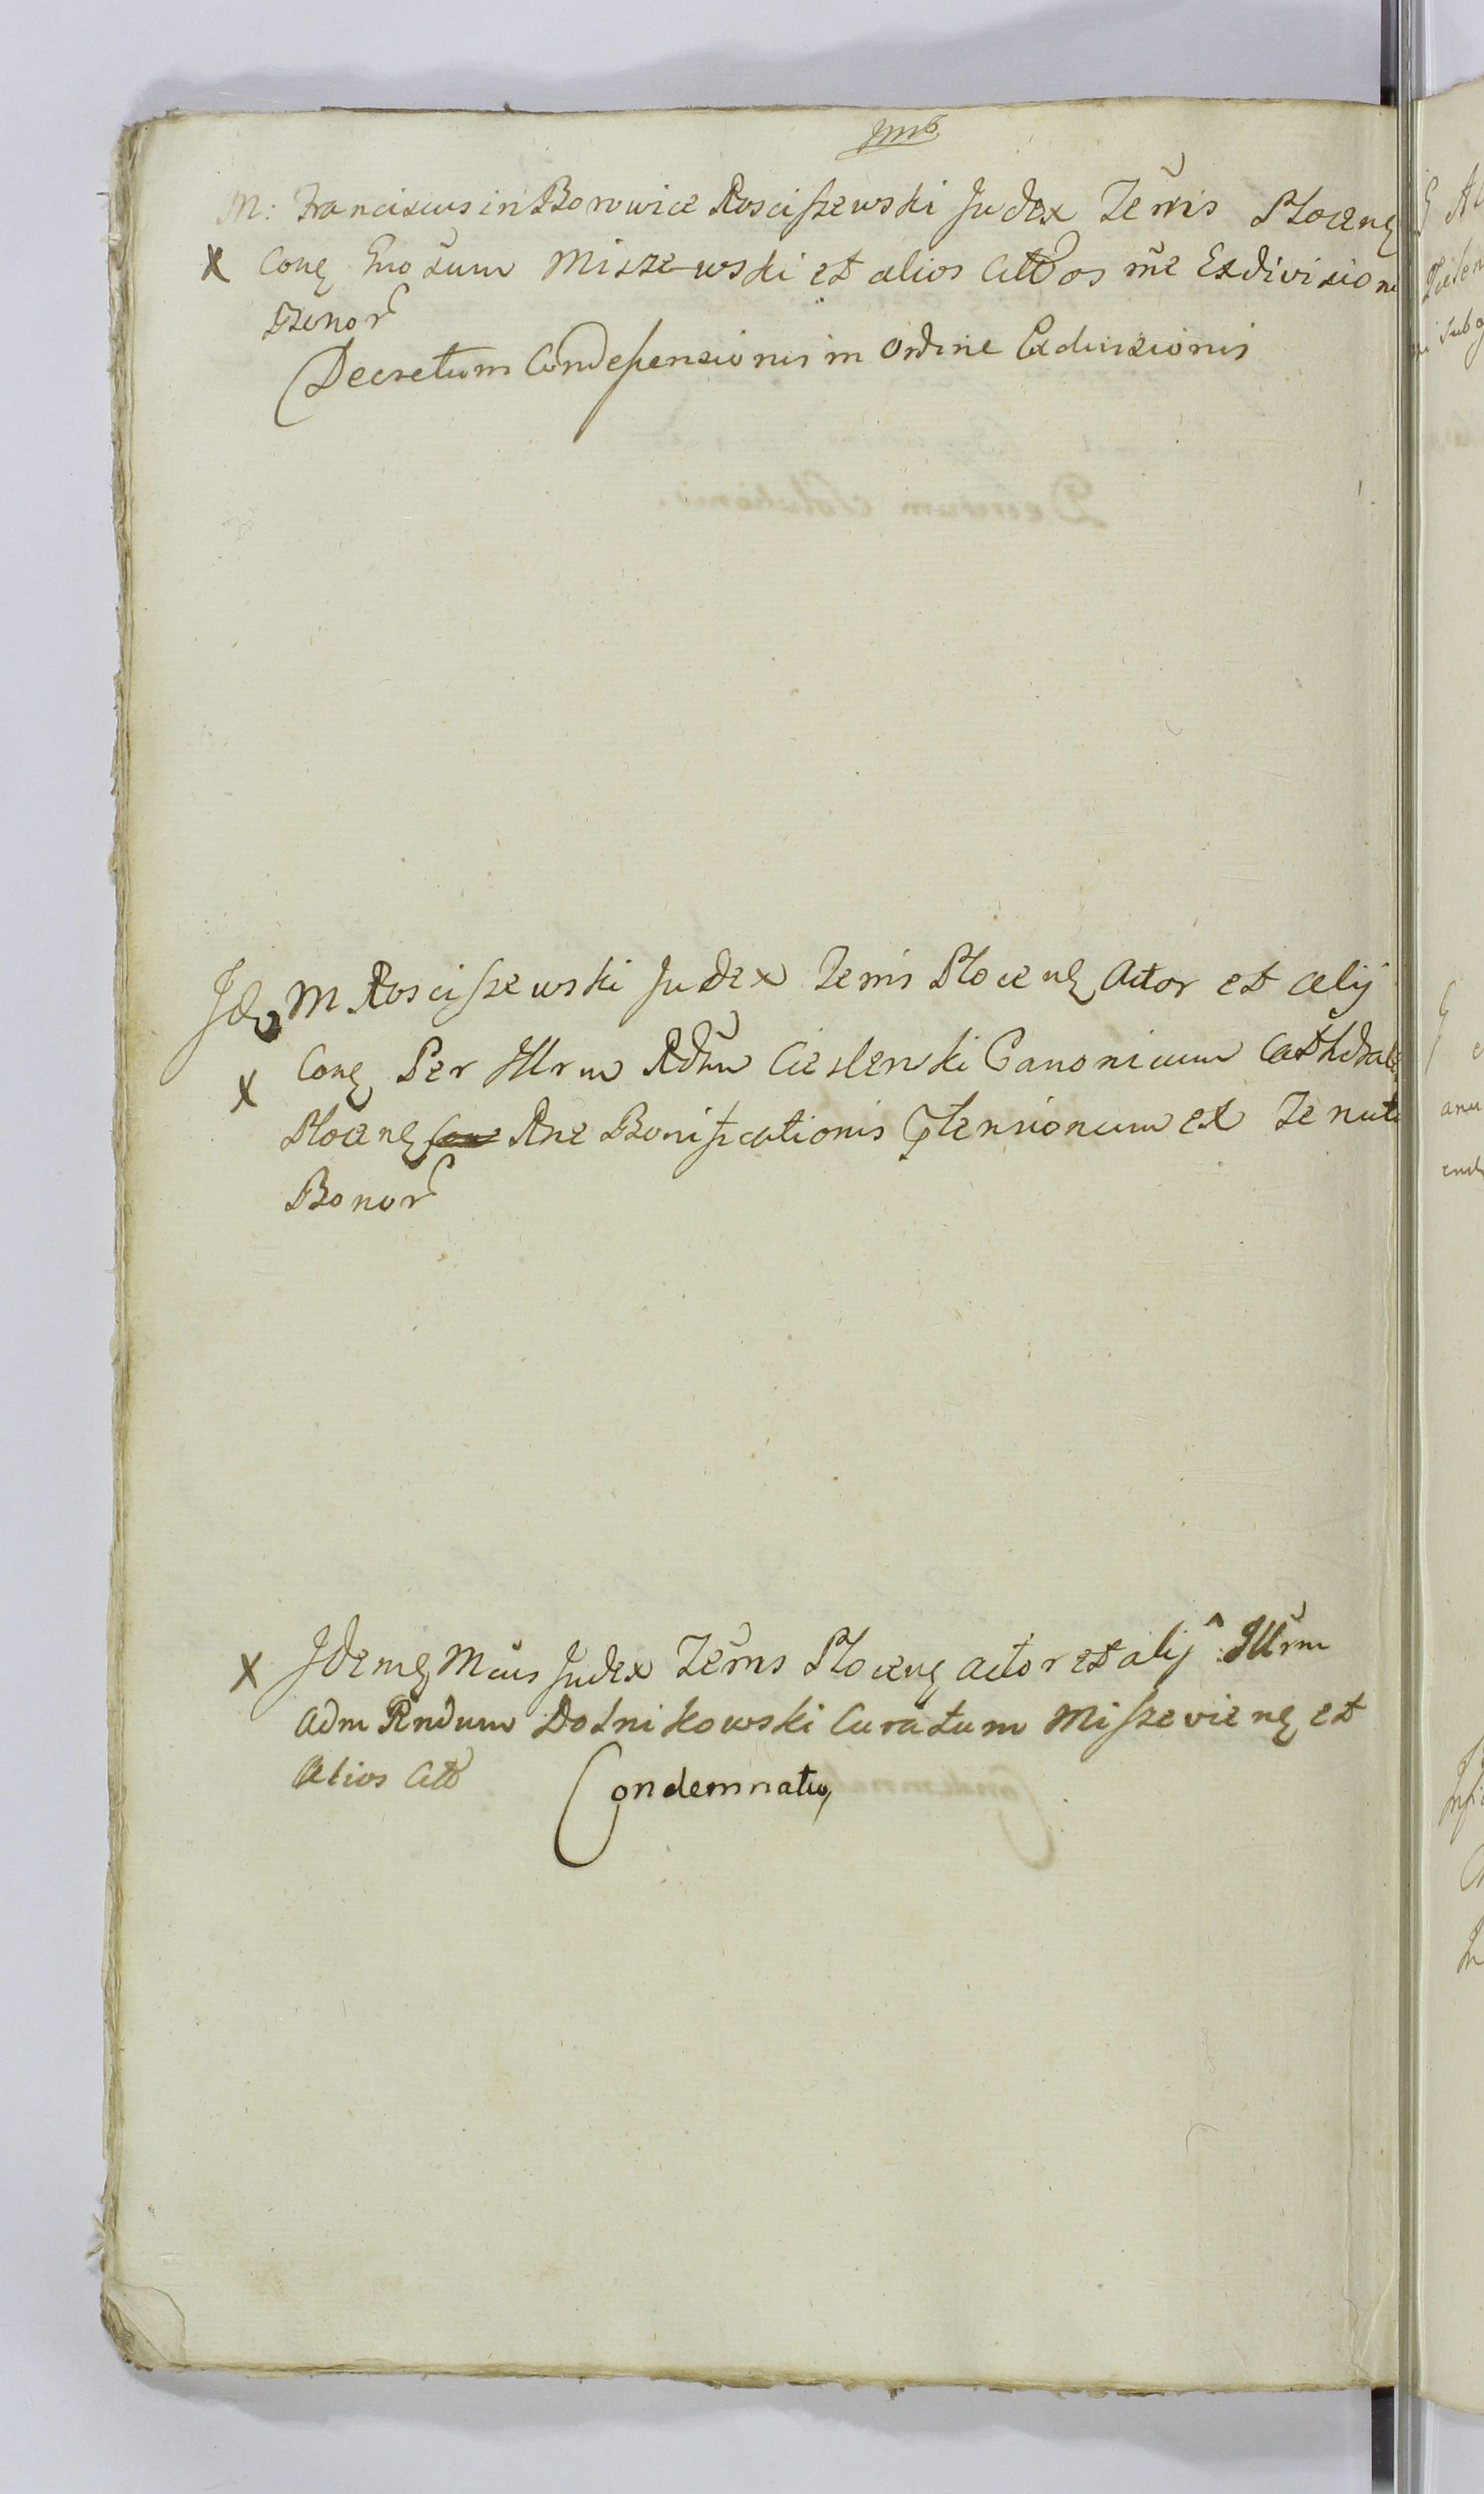 M: Franciscus in Borowice Rosciszewski Judex Terris Plocens
X Cons Gnosum Miszewski et alios Cittos rne Exdivisione
Bonor
Decretum Condescensionis in ordine Exdivisionis
Jd M Rosciszewski Judex Terris Plocens Actor et alij
X Cons Per Illrm Rdum Cieslenski Canonicum Cathdrale
Plocens Rne Bonificationis Ptensionum ex Tenuta
Bonor
X Idem M Judex Terris Plocens actor et alij Illrm
Adm Rndum Dotnikowski Curatum Miszeviens et
Alios Citt Condemnatio